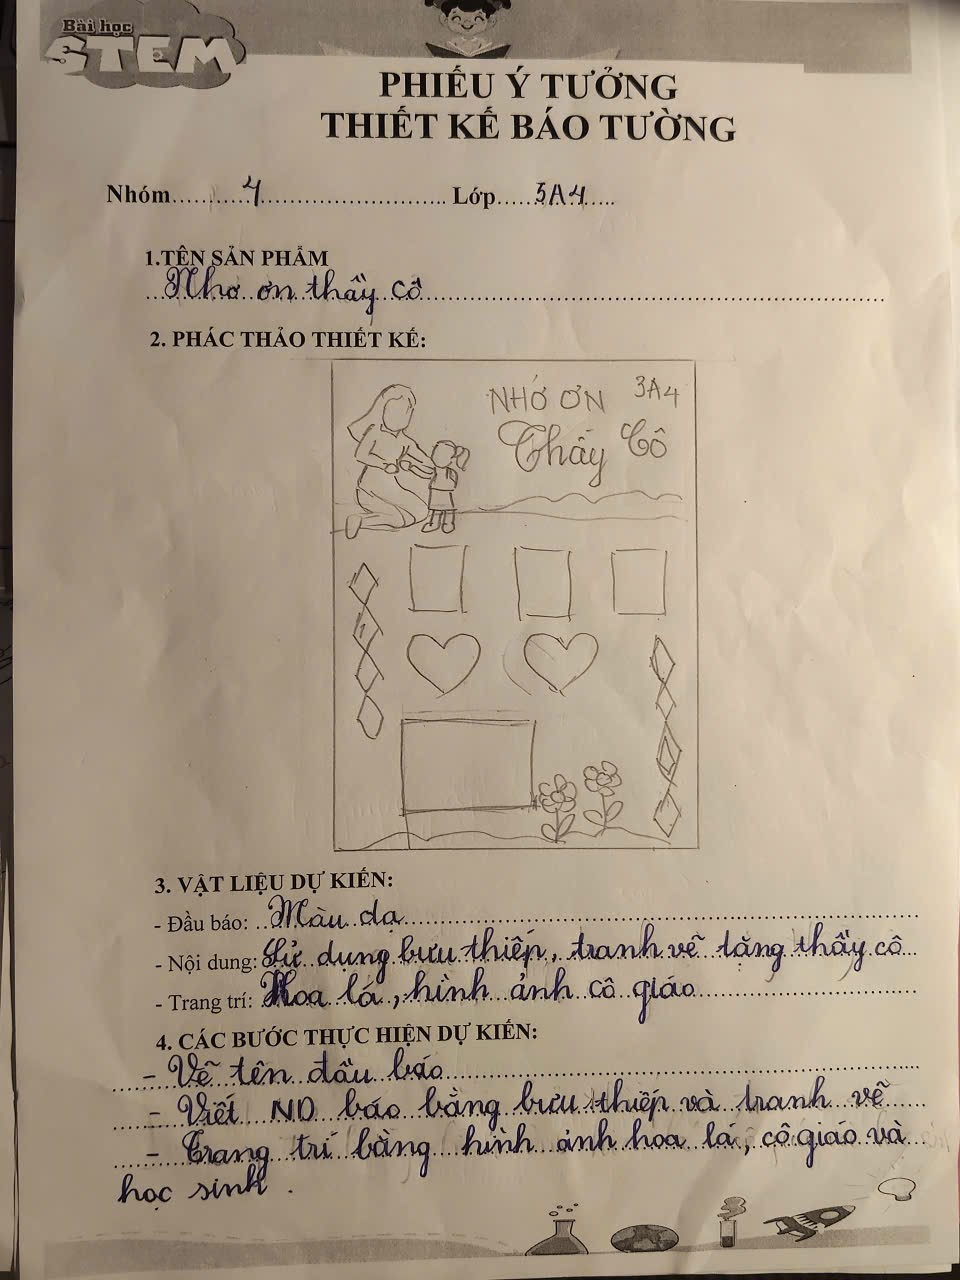 Bài học
STEM
PHIẾU Ý TƯỞNG
THIẾT KẾ BÁO TƯỜNG
Nhóm.........4............................. Lớp.....3A4.....
1.TÊN SẢN PHẨM
Nhớ ơn thầy cô
2. PHÁC THẢO THIẾT KẾ:
NHỚ ƠN 3A4
Thầy Cô
3. VẬT LIỆU DỰ KIẾN:
- Đầu báo: Màu dạ
- Nội dung: Sử dụng bưu thiếp, tranh vẽ tặng thầy cô
- Trang trí: Hoa lá, hình ảnh cô giáo
4. CÁC BƯỚC THỰC HIỆN DỰ KIẾN:
- Vẽ tên đầu báo
- Viết ND báo bằng bưu thiếp và tranh vẽ
- Trang trí bằng hình ảnh hoa lá, cô giáo và
học sinh.